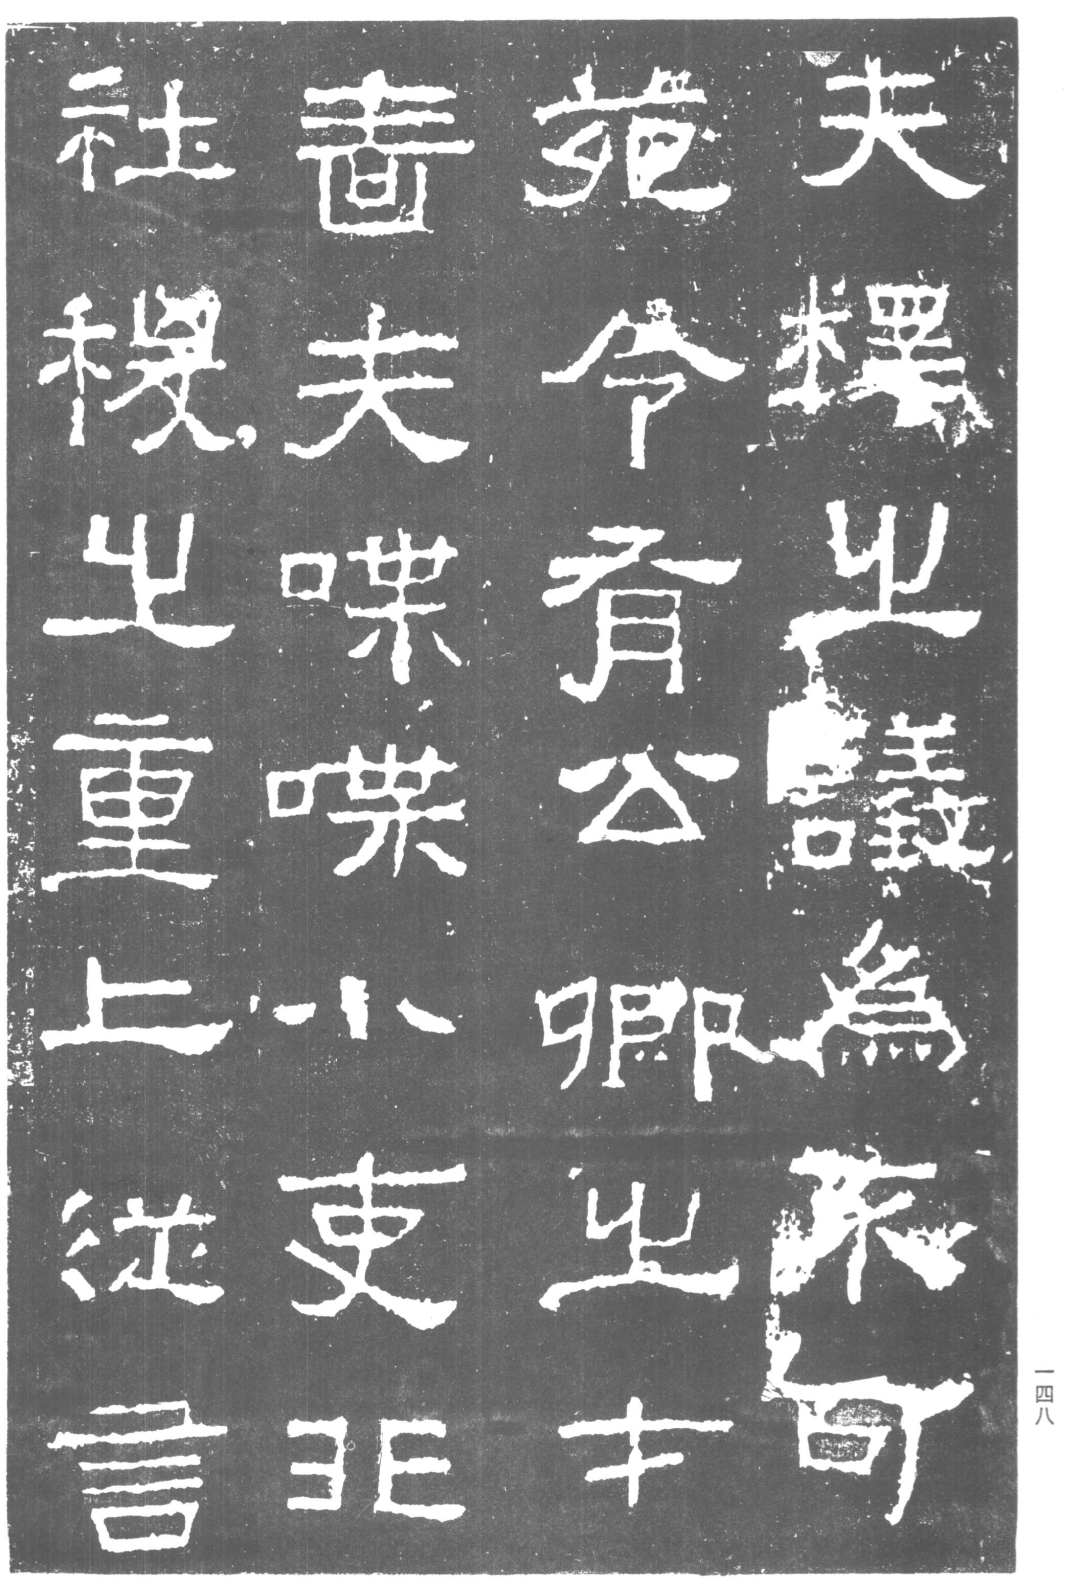 夫擇之議為不可
苑令有公卿之才
嗇夫喋喋小吏非
社稷之重上從言
一四八